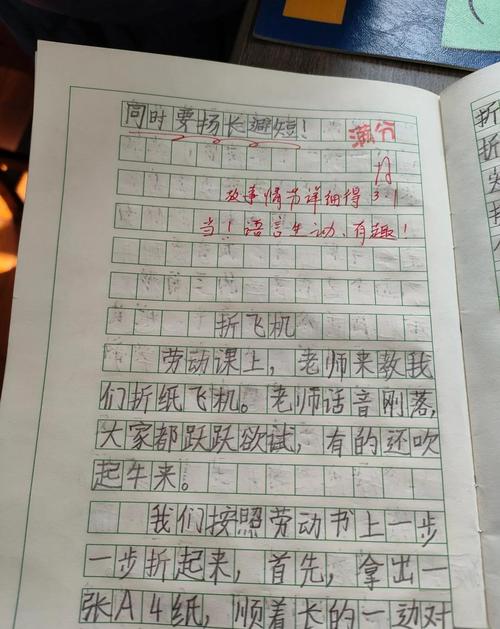 同时要扬长避短！
满分
故事情节详细得
当！语言生动、有趣！
折飞机
劳动课上，老师来教我
们折纸飞机。老师话音刚落，
大家都跃跃欲试，有的还吹
起牛来。
我们按照劳动书上一步
一步折起来，首先，拿出一
张A4纸，顺着长的一边对
折
折